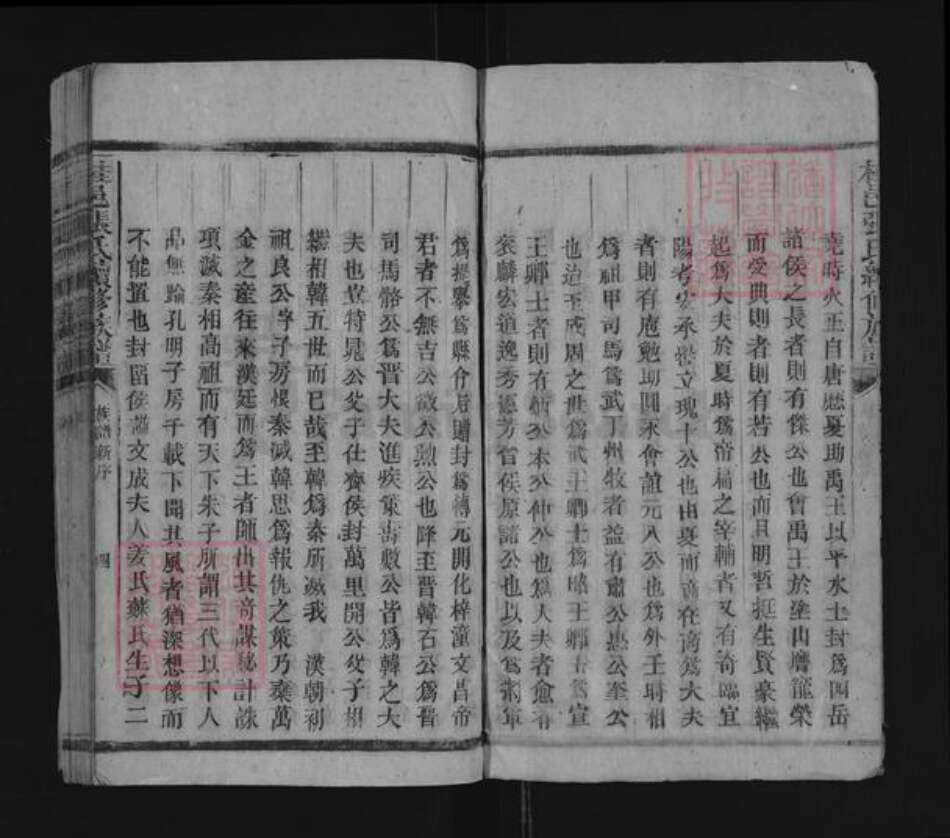 堯時火正自唐歷夏助禹王以平水土封為四岳
諸侯之長者則有傑公也會禹王於塗山膺寵榮
而受典則者則有若公也而且明哲挺生賢豪繼
起為大夫於夏時為帝扃之宰輔者又有奇臨宜
陽考安承巒立瑰十公也由夏而商在商為大夫
者則有庵勉助圓永會誼元八公也為外壬時相
為祖甲司馬為武丁州牧者益有肅公熱公奎公
也迨至成周之世為武王卿士為昭王卿士宣
王卿士者則有公本公仲公也為大夫者愈有
袞麟宏道逸秀德芳首侯原諸公也以及為
為楫舉為縣令后贈封為轉元開化梓潼文昌帝
君者不無吉公徵公勲公也降至晉韓石公為晉
司馬骼公為晋大夫進疾策壽數公皆為韓之大
夫也豈特晁公父子仕齊侯封萬里開公父子相
繼相韓五世而已哉至韓為秦所滅我 漢朝初
祖良公字子房恨秦滅韓思為報仇之策乃棄萬
金之產往來漢廷而為王者師出其奇謀秘計誅
項滅秦相高祖而有天下朱子所謂三代以下人
品無踰孔明子房千載下聞其風者猶深想像而
不能置也封留侯諡文成夫人姜氏蘇氏生子二
桂邑張氏續修族譜
族譜新序
四
桂邑張氏續修族譜